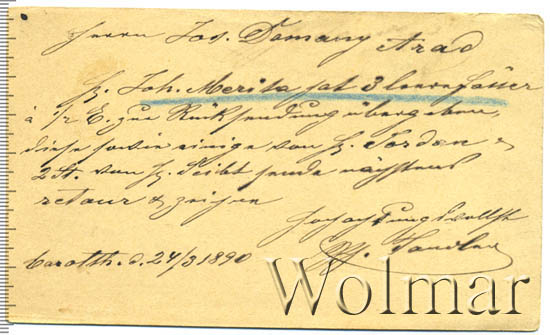 Herrn Jos. Domany Arad
H. Joh. Merita hat 3 leere Fässer
à 1/2 E. zur Rücksendung übergeben,
diese sowie einige von H. Jordan &
2 St. von H. Seibt sende nächstens
retour & zeichne
hochachtungsvollst
d. 24/3 1890
Wolmar